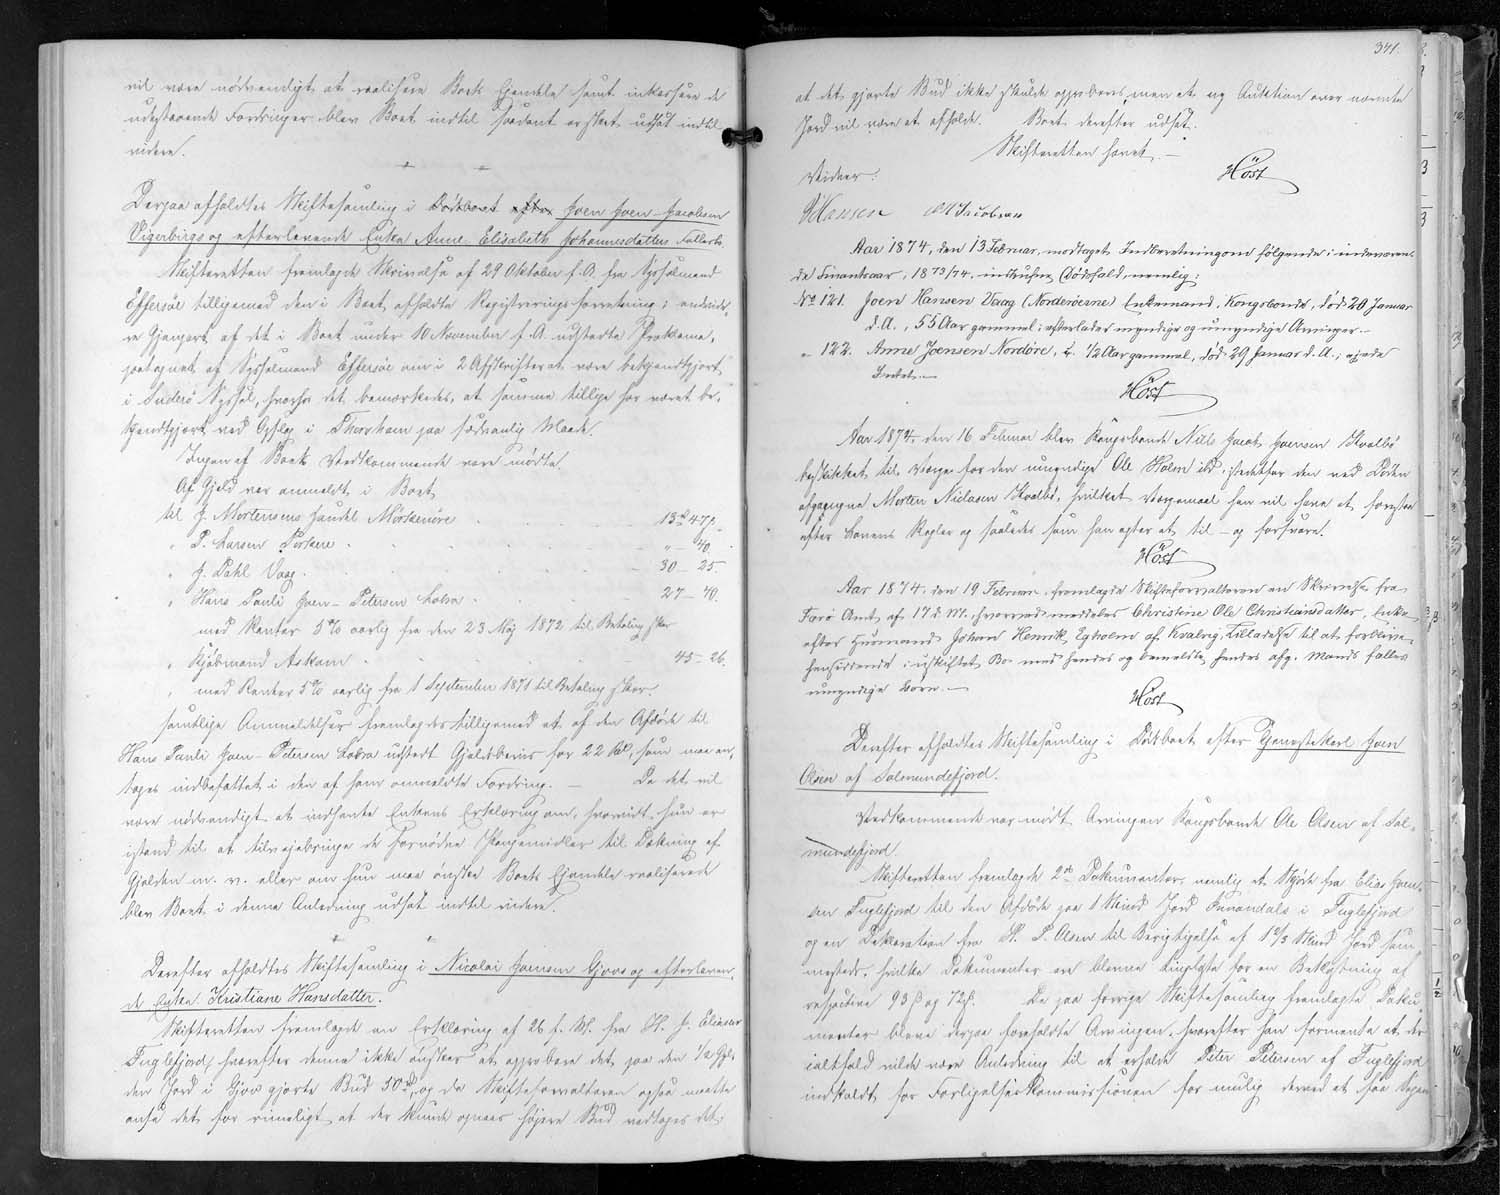 vil være nødvendigt at realisere Boets Ejendele samt inkassere de
udestaaende Fordringer blev Boet indtil saadant er skeet udsat indtil
videre.
Derpaa afholdtes Skiftesamling i Dødsboet efter Joen Joen-Jacobsen
Vigerbirgs og efterlevende Enke Anne Elisabeth Johannesdatters Fællesbo.
Skifteretten fremlagde Skrivelse af 29 Oktober f. A. fra Sysselmand
Effersøe tilligemed den i Boet afholdte Registreringsforretning; endvide-
re Gjenpart af det i Boet under 10 November f. A. udstedte Proklama,
paategnet af Sysselmand Effersøe om i 2 Afskrifter at være bekjendtgjort
i Suderø Syssel, hvorhos det bemærkedes, at samme tillige har været be-
kjendtgjort ved Opslag i Thorshavn paa sædvanlig Maade.
Ingen af Boets Vedkommende vare mødte.
Af Gjæld var anmeldt i Boet
til J. Mortensens Handel 13 rd 47 ß.
" P. Larsen Porkere " - 40.
" J. Dahl Vaag 30 - 25.
" Hans Pauli Joen-Petersen Lobra 27 - 70.
med Renter 5 % aarlig fra den 23 Maj 1872 til Betaling skeer
" Kjøbmand Askam 45 - 26.
" med Renter 5 % aarlig fra 1 September 1871 til Betaling skeer.
Samtlige Anmeldelser fremlagdes tilligemed et af den Afdøde til
Hans Pauli Joen-Petersen Lobra udstedt Gjældsbevis for 22 Rd, som maa an-
tages indbefattet i den af ham anmeldte Fordring. — Da det vil
være nødvendigt at indhente Enkens Erklæring om, hvorvidt hun er
istand til at tilvejebringe de fornødne Pengemidler til Dækning af
Gjælden m. v. eller om hun maa ønske Boets Ejendele realiserede
blev Boet i denne Anledning udsat indtil videre.
Derefter afholdtes Skiftesamling i Nicolai Joensen Gjovs og efterleven-
de Enke Kristiane Hansdatter.
Skifteretten fremlagde en Erklæring af 26 f. M. fra H. J. Eliasen
Fuglefjord, hvorefter denne ikke ønsker at approbere det paa den 1/2 Gyl-
den Jord i Gjov gjorte Bud 50 rd, og da Skifteforvalteren ogsaa maatte
anse det for rimeligt at der kunde opnaaes højere Bud vedtoges det
341.
at det gjorte Bud ikke skulde approberes, men at ny Auktion over nævnte
Jord vil være at afholde. Boet derefter udsat.
Skifteretten hævet. —
Høst
Vidner:
Hansen Jacobsen
Aar 1874, den 13 Februar, modtaget Indberetning om følgende i indeværen-
de Finantsaar, 1873/74, indtrufne Dødsfald nemlig:
No 121. Joen Hansen Vaag (Norderøerne) Enkemand, Kongsbonde, død 20 Januar
d. A., 55 Aar gammel; efterlader myndige og umyndige Arvinger. —
" 122. Anne Joensen Nordøre, 1/2 Aar gammel, død 29 Januar d. A.; ejede
Intet. —
Høst
Aar 1874, den 16 Februar blev Kongsbonde Niels Jacob Joensen Hvalbø
beskikket til Værge for den umyndige Ole Holm ibd. istedetfor den ved Døden
afgangne Morten Niclasen Hvalbø, hvilket Værgemaal han vil have at forestaa
efter Lovens Regler og saaledes som han agter at til- og forsvare.
Høst
Aar 1874, den 19 Februar fremlagde Skifteforvalteren en Skrivelse fra
Færø Amt af 17 d. M. hvorved meddeles Christine Ole Christiansdatter, Enke
efter Husmand Johan Henrik Egholm af Kvalvig, Tilladelse til at forblive
hensiddende i uskiftet Bo med hendes og bemeldte hendes afg. Mands fælles
umyndige Børn. —
Høst
Derefter afholdtes Skiftesamling i Dødsboet efter Tjenestekarl Joen
Olsen af Salmundefjord.
Vedkommende var mødt Arvingen Kongsbonde Ole Olsen af Sal-
mundefjord.
Skifteretten fremlagde 2de Dokumenter, nemlig et Skjøde fra Elias Joen-
sen Fuglefjord til den Afdøde paa 1 Mind Jord i Fuglefjord
og en Deklaration fra H. P. Olsen til Berigtigelse af 1 2/3 Mind Jord sam-
mesteds, hvilke Dokumenter ere blevne tinglæste for en Bekostning af
respective 93 ß og 72 ß. De paa forrige Skiftesamling fremlagte Doku-
menter bleve derpaa foreholdte Arvingen, hvorefter han formente at der
ialtfald vilde være Anledning til at erholde Peter Petersen af Fuglefjord
indkaldt for Forligelseskommissionen for mulig derved at faa Sagen